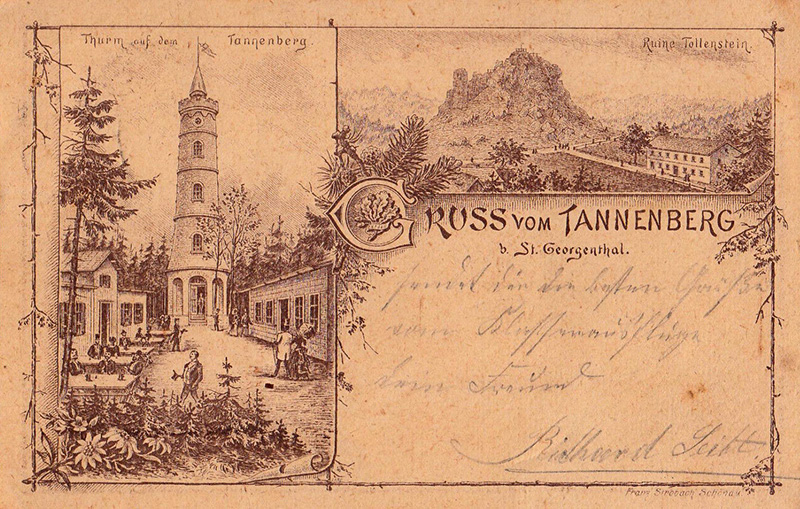 Thurm auf dem Tannenberg.
Ruine Tollenstein.
GRUSS VOM TANNENBERG
b. St. Georgenthal.
sendet dir die besten Grüße
vom
dem Freund
Richard
Franz Strobach Schönau.